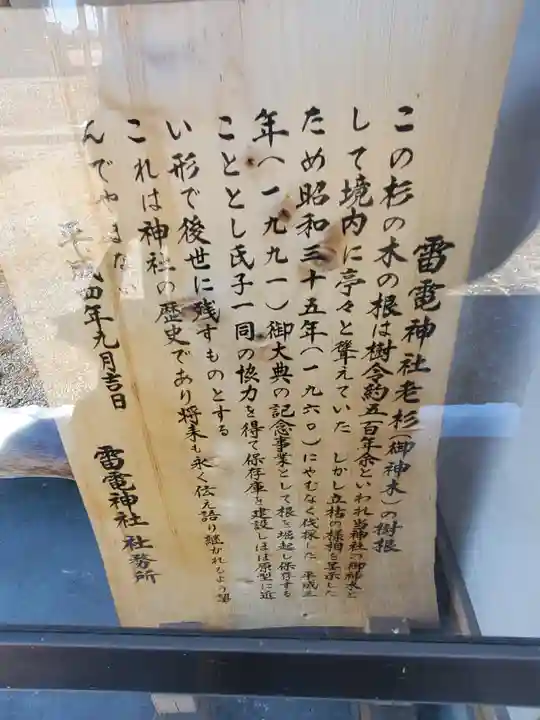 雷電神社老杉(御神木)の樹根
この杉の木の根は樹令約五百年余といわれ当神社の御神木と
して境内に亭々と聳えていた しかし立枯の様相を呈示した
ため昭和三十五年(一九六〇)にやむなく伐採した 平成三
年(一九九一)御大典の記念事業として根を堀起し保存する
こととし氏子一同の協力を得て保存庫を建設しほぼ原型に近
い形で後世に残すものとする
これは神社の歴史であり将来も永く伝え語り継がれるよう望
んでやまない
平成四年九月吉日
雷電神社社務所